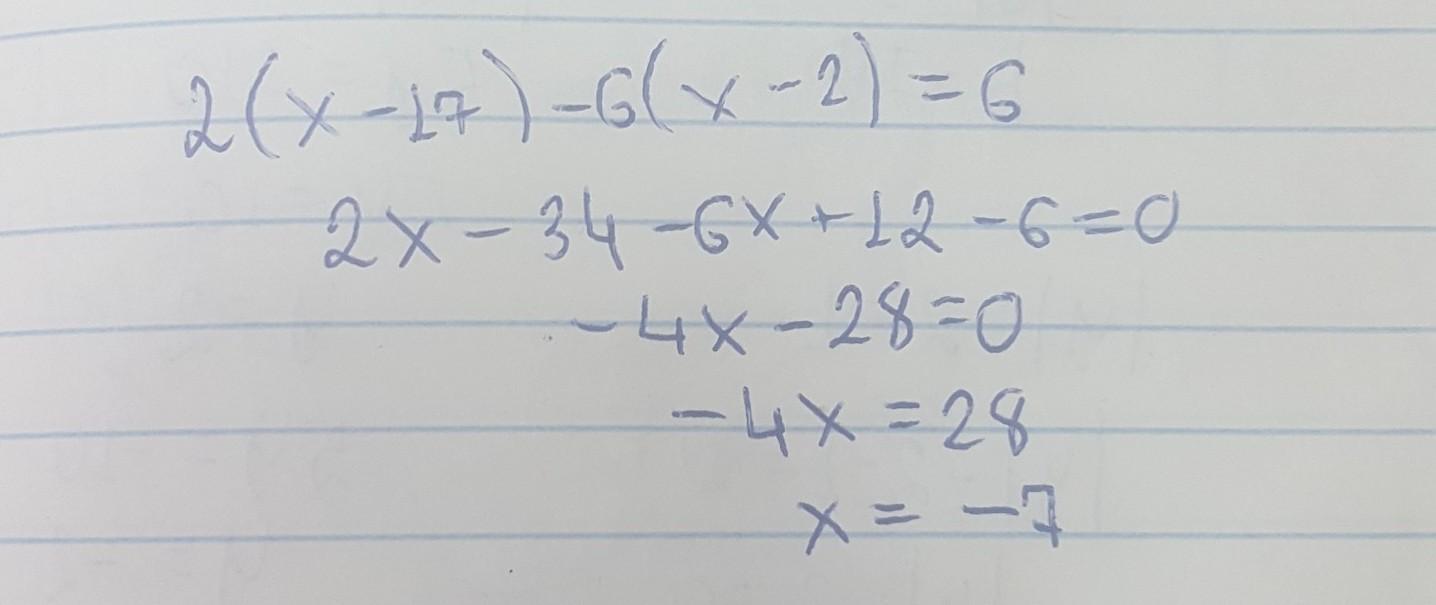 2(x-17)-6(x-2)=6
2x-34-6x+12-6=0
-4x-28=0
-4x=28
x=-7